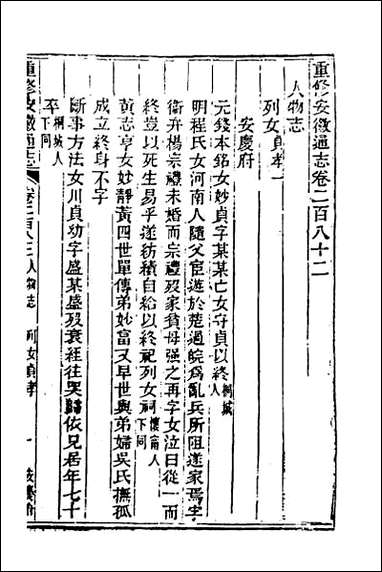 重修安徽通志卷二百八十二
人物志
列女貞孝一
安慶府
元錢本銘女妙貞字某某亡女守貞以終桐城人
明程氏女河南人隨父宦遊於楚過皖為亂兵所阻遂家焉字
衛弁楊宗禮未婚而宗禮歿家貧母强之再字女泣曰從一而
終豈以死生易乎遂紡績自給以終祀列女祠懷甯人下同
黃志亨女妙靜黃四世單傳弟妙富又早世與弟婦吳氏撫孤
成立終身不字
斷事方法女川貞幼字盛某盛歿衰絰往哭歸依兄居年七十
卒桐城人下同
重修安徽通志
卷二百八十二人物志
列女貞孝
一